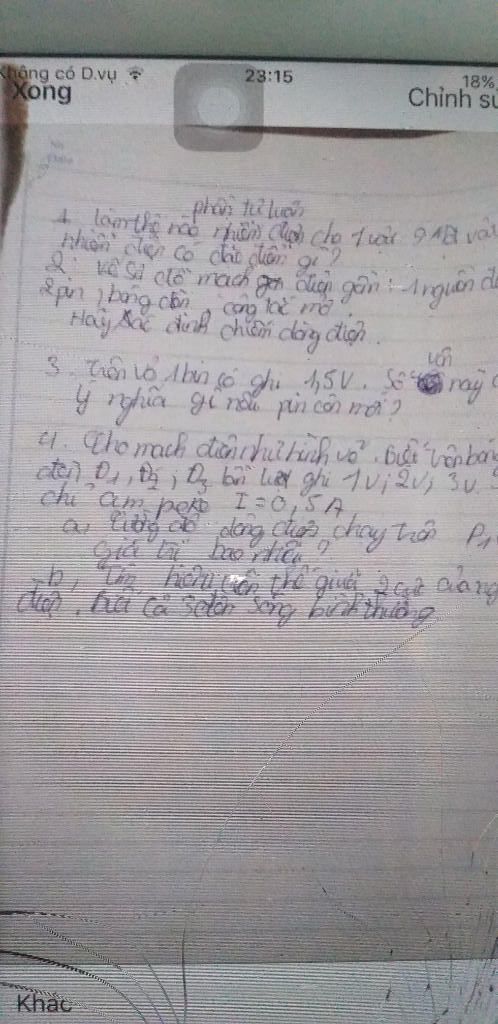 Không có D.vụ
23:15
18%
Xong
Chỉnh sử
phần tự luận
1 làm thế nào nhiễm điện cho 1 vật ? vật
nhiễm điện có đặc điểm gì?
2. vẽ sơ đồ mạch điện gồm: 1 nguồn
2 pin, bóng đèn, công tắc mở.
Hãy xác định chiều dòng điện.
3. trên vỏ 1 pin có ghi 1,5V. Số vôn này
ý nghĩa gì nếu pin còn mới?
4. Cho mạch điện như hình vẽ. Biết trên bóng
đèn Đ1, Đ2, Đ3 lần lượt ghi 1V; 2V; 3V.
chỉ ampe kế I = 0,5A
a, cường độ dòng điện chạy trên
giá trị bao nhiêu?
b, Tìm hiệu điện thế giữa 2 cực của
điện. biết cả 3 đèn sáng bình thường
Khác